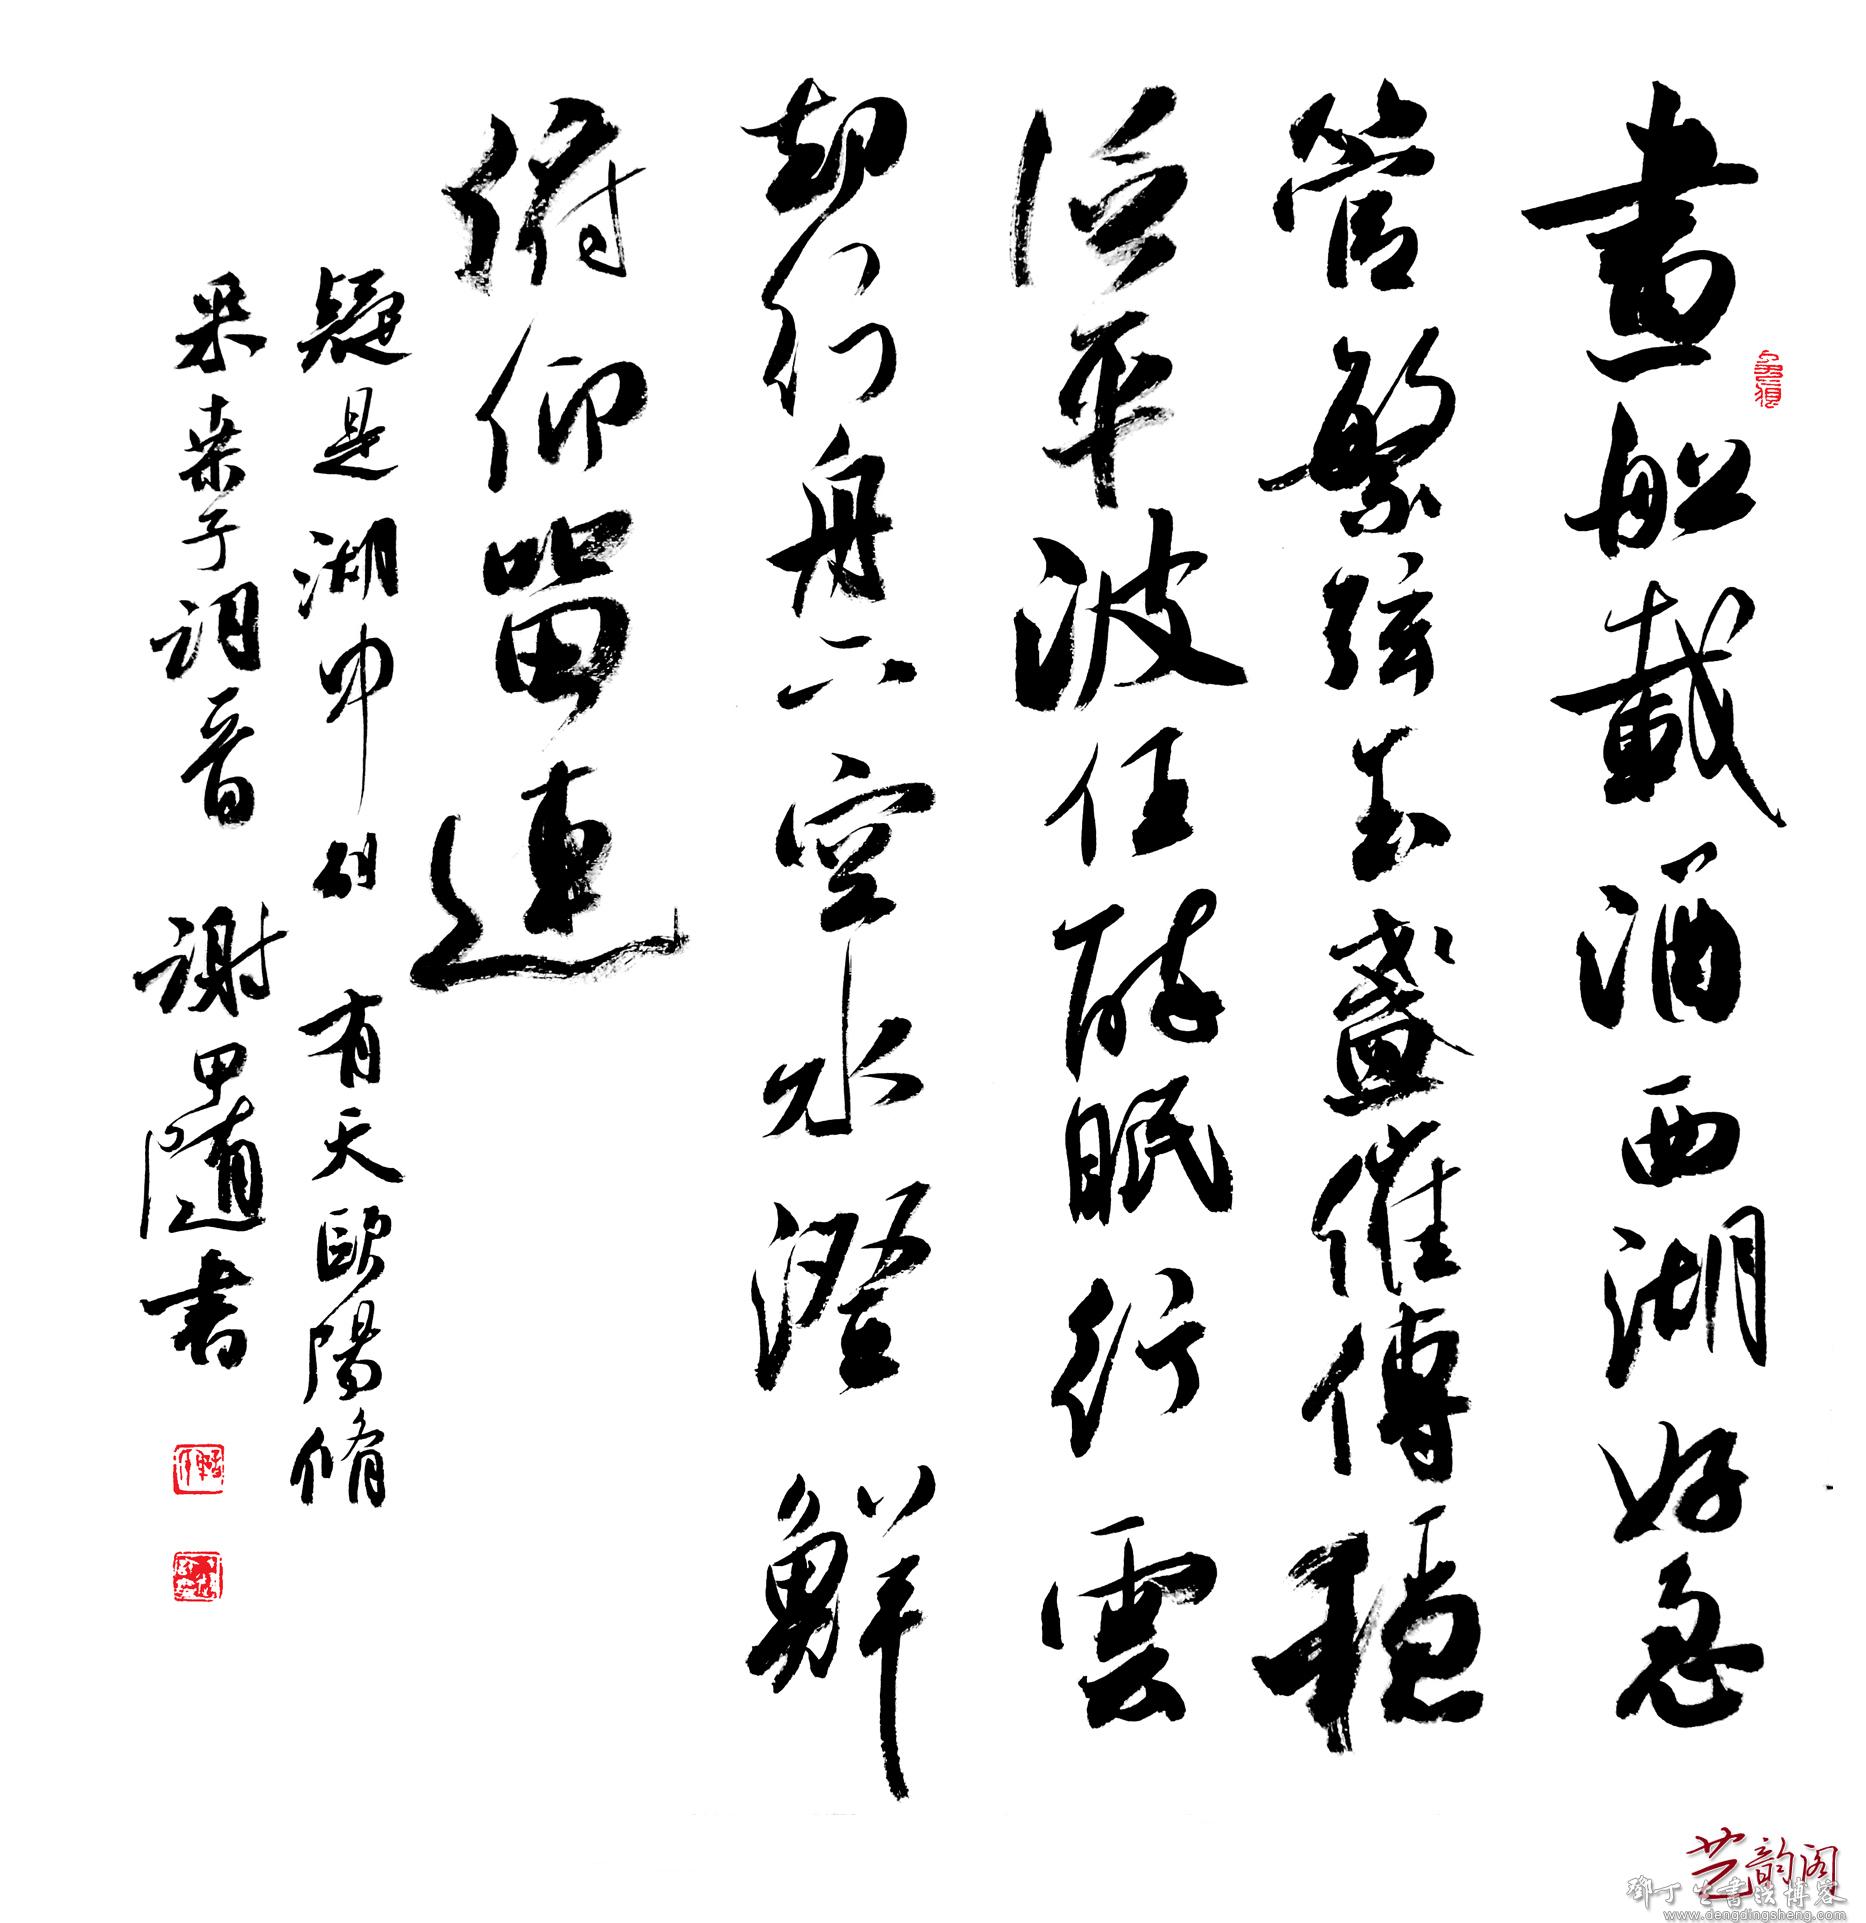 畫船載酒西湖好急
管繁弦玉盞催傳穩
泛平波任醉眠行雲
却行舟下空水澄鮮
俯仰留連
疑是湖中别有天歐陽脩
采桑子詞 謝甲隨書
艺韵阁
鄧丁生書法博客
www.dengdingsheng.com